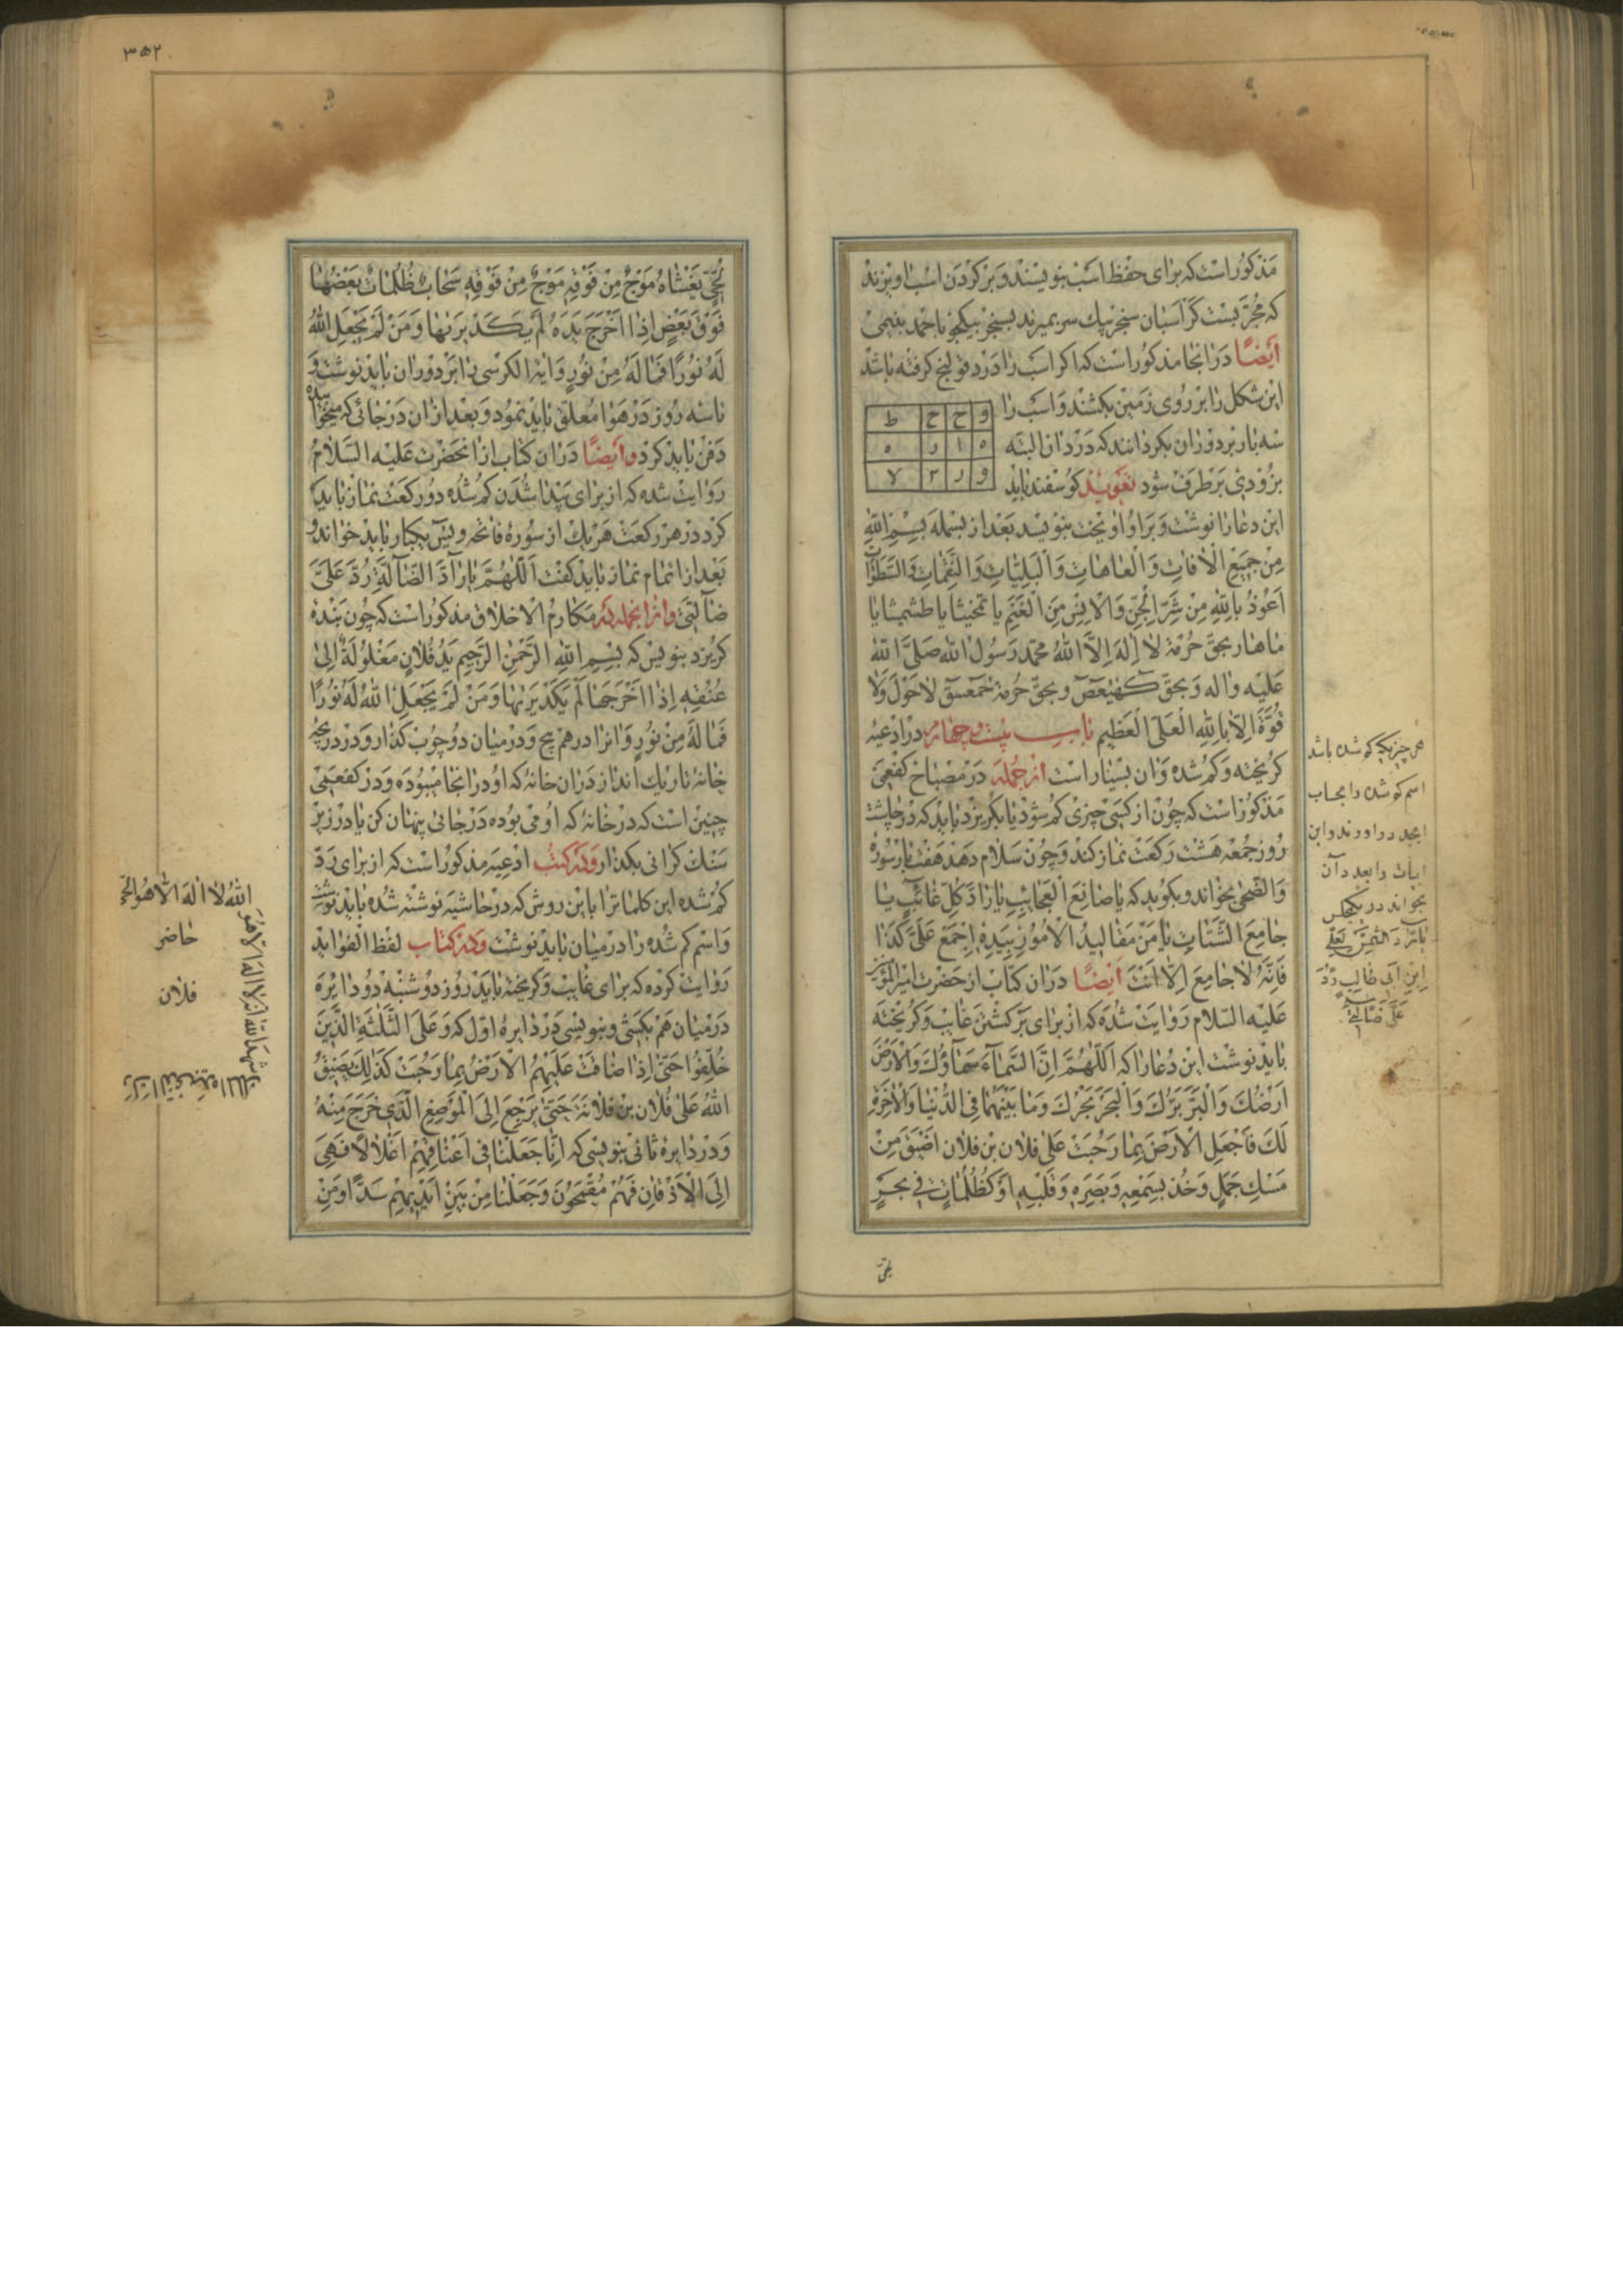 مذکور است که برای حفظ اسب بنویسند و بر گردن اسب اویزند
که مجربست کر اسبان سنجر نیك سر بمیرند بسنجر بیکجو با حمد بنیمی
ایضًا در انجا مذکور است که اکر اسب را درد قولنج کرفته باشد
این شکل را بر روی زمین بکشند و اسب را
سه بار بر دور ان بکردانند که درد ان البته
بزودی برطرف شود تعویذ کوسفند باید
و ح ح ط
ه ا ر ه
و ر ۲ ۷
این دعا را نوشت و بر او اویخت بنویسد بعد از بسمله بِسْمِ اللهِ
مِنْ جَمیعِ الْاٰفاتِ وَالْعاهاتِ وَالْبَلِیّاتِ وَالنَّقِماتِ وَالسَّطَواتِ
اَعُوذُ بِاللهِ مِنْ شَرِّ الْجِنِّ وَالْاِنْسِ مِنَ الْغَنَمِ یا تمخیثا یا طشمیثا یا
ماهار بحق حرمة لا اِلٰهَ اِلَّا اللهُ محمد رَسُولُ الله صَلَّی الله
عَلَیْهِ واله وَبحق کهیعص وبحق حُرمة حمعسق لاحَوْلَ وَلا
قُوَّةَ اِلّا بِاللهِ الْعَلِیِّ الْعَظیمِ باب بیست و چهارم در ادعیه
کریخته و کم شده و ان بسیار است از جمله در مصباح کفعمی
مذکور است که چون از کسی چیزی کم شود یا بکریزد باید که در چاشت
روز جمعه هشت رکعت نماز کند و چون سلام دهد هفت بار سورهٔ
والضحی بخواند و بکوید که یا صانِعَ الْعَجائِبِ یا رادَّ کُلِّ غائِبٍ یا
جامِعَ الشَّتاتِ یا مَنْ مَقالیدُ الْاُمُورِ بِیَدِهِ اِجْمَعْ عَلَیَّ کَذا
فَاِنَّهُ لا جامِعَ اِلّا اَنْتَ ایضًا در ان کتاب از حضرت امیرالمؤمنین
علیه السلام روایت شده که از برای برکشتن غایب و کریخته
باید نوشت این دعا را که اَللّٰهُمَّ اِنَّ السَّماءَ سَماؤُكَ وَالْاَرْضَ
اَرْضُكَ وَالْبَرَّ بَرُّكَ وَالْبَحْرَ بَحْرُكَ وَما بَیْنَهُما فِی الدُّنْیا وَالْاٰخِرَةِ
لَكَ فَاجْعَلِ الْاَرْضَ بِما رَحُبَتْ عَلٰی فلان بن فلان اَضْیَقَ مِنْ
مَسْكِ جَمَلٍ وَخُذْ بِسَمْعِهِ وَبَصَرِهِ وَقَلْبِهِ اَوْ کَظُلُماتٍ فی بَحْرٍ
لجی
هر چیزیکه کم شده باشد
اسم کم شده را بحساب
ابجد در اورند و این
ابیات را بعدد آن
بخوانند در یکمجلس
یا مَنْ رَدَّ الشَّمْسَ لِعَلِیِّ
ابْنِ اَبی طالِبٍ رُدَّ
عَلَیَّ ضالَّتی
۳۵۲
لُجِّیٍّ یَغْشاهُ مَوْجٌ مِنْ فَوْقِهِ مَوْجٌ مِنْ فَوْقِهِ سَحابٌ ظُلُماتٌ بَعْضُها
فَوْقَ بَعْضٍ اِذا اَخْرَجَ یَدَهُ لَمْ یَکَدْ یَرٰیها وَمَنْ لَمْ یَجْعَلِ اللهُ
لَهُ نُورًا فَما لَهُ مِنْ نُورٍ وایة الکرسی را بر دور ان باید نوشت و
تا سه روز در هوا معلق باید نمود و بعد از ان در جائی که میخوابیده
دفن باید کرد وایضًا در ان کتاب از انحضرت علیه السلام
روایت شده که از برای پیدا شدن کم شده دو رکعت نماز باید
کرد در هر رکعت هر یك از سورهٔ فاتحه و یٰسٓ یکبار باید خواند و
بعد از اتمام نماز باید کفت اَللّٰهُمَّ یا رادَّ الضّالَّةِ رُدَّ عَلَیَّ
ضالَّتی وازانجمله در مکارم الاخلاق مذکور است که چون بنده
کریزد بنویس که بِسْمِ اللهِ الرَّحْمٰنِ الرَّحیمِ یَدُ فُلانٍ مَغْلُولَةٌ اِلٰی
عُنُقِهِ اِذا اَخْرَجَها لَمْ یَکَدْ یَرٰیها وَمَنْ لَمْ یَجْعَلِ اللهُ لَهُ نُورًا
فَما لَهُ مِنْ نُورٍ و انرا در هم پیچ و در میان دو چوب کذار و در دریچه
خانهٔ تاریك انداز در ان خانه که او در انجا میبوده و در کفعمی
چنین است که در خانهٔ که او می بوده در جائی پنهان کن یا در زیر
سنك کرانی بکذار و در کتب ادعیه مذکور است که از برای ردّ
کم شده این کلمات را باین روش که در حاشیه نوشته شده باید نوشت
و اسم کم شده را در میان باید نوشت و در کتاب لفظ الفواید
روایت کرده که برای غایب و کریخته باید روز دوشنبه دو دایره
در میان هم بکشی و بنویسی در دایرهٔ اوّل که وَعَلَی الثَّلٰثَةِ الَّذینَ
خُلِّفُوا حَتّٰی اِذا ضاقَتْ عَلَیْهِمُ الْاَرْضُ بِما رَحُبَتْ کَذٰلِكَ یُضَیِّقُ
اللهُ عَلٰی فُلانِ بن فلانة حَتّٰی یَرْجِعَ اِلَی الْمَوْضِعِ الَّذی خَرَجَ مِنْهُ
و در دایرهٔ ثانی بنویسی که اِنّا جَعَلْنا فی اَعْناقِهِمْ اَغْلالًا فَهِیَ
اِلَی الْاَذْقانِ فَهُمْ مُقْمَحُونَ وَجَعَلْنا مِنْ بَیْنِ اَیْدیهِمْ سَدًّا وَمِنْ
اللهُ لا اِلٰهَ اِلّا هُوَ الحیّ
حاضر
فلان